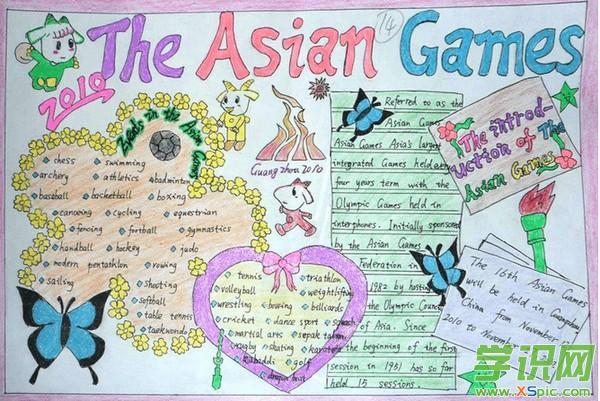 14
The Asian Games
2010
in the Asian Games
chess swimming
archery athletics badminton
baseball basketball boxing
canoeing cycling equestrian
fencing football gymnastics
handball hockey judo
modern pentathlon rowing
sailing shooting
softball
table tennis
taekwondo
Guang zhou 2010
tennis triathlon
volleyball weightlifting
wrestling bowing billiards
cricket dance sport squash
martial arts sepak takraw
rugby skating karate
kabaddi golf
dragon boat
Referred to as the
Asian Games
Asian Games Asia's largest
integrated Games held every
four years term with the
Olympic Games held in
interphones. Initially sponsored
by the Asian Games
Federation in
1982 by hosting
the Olympic Council
of Asia. Since
the beginning of the first
session in 1951 has so far
held 15 sessions.
The introd-
uction of The
Asian Games
The 16th Asian Games
will be held in Guangzhou
China from November 12
2010 to November
学识网
www.XSpic.com